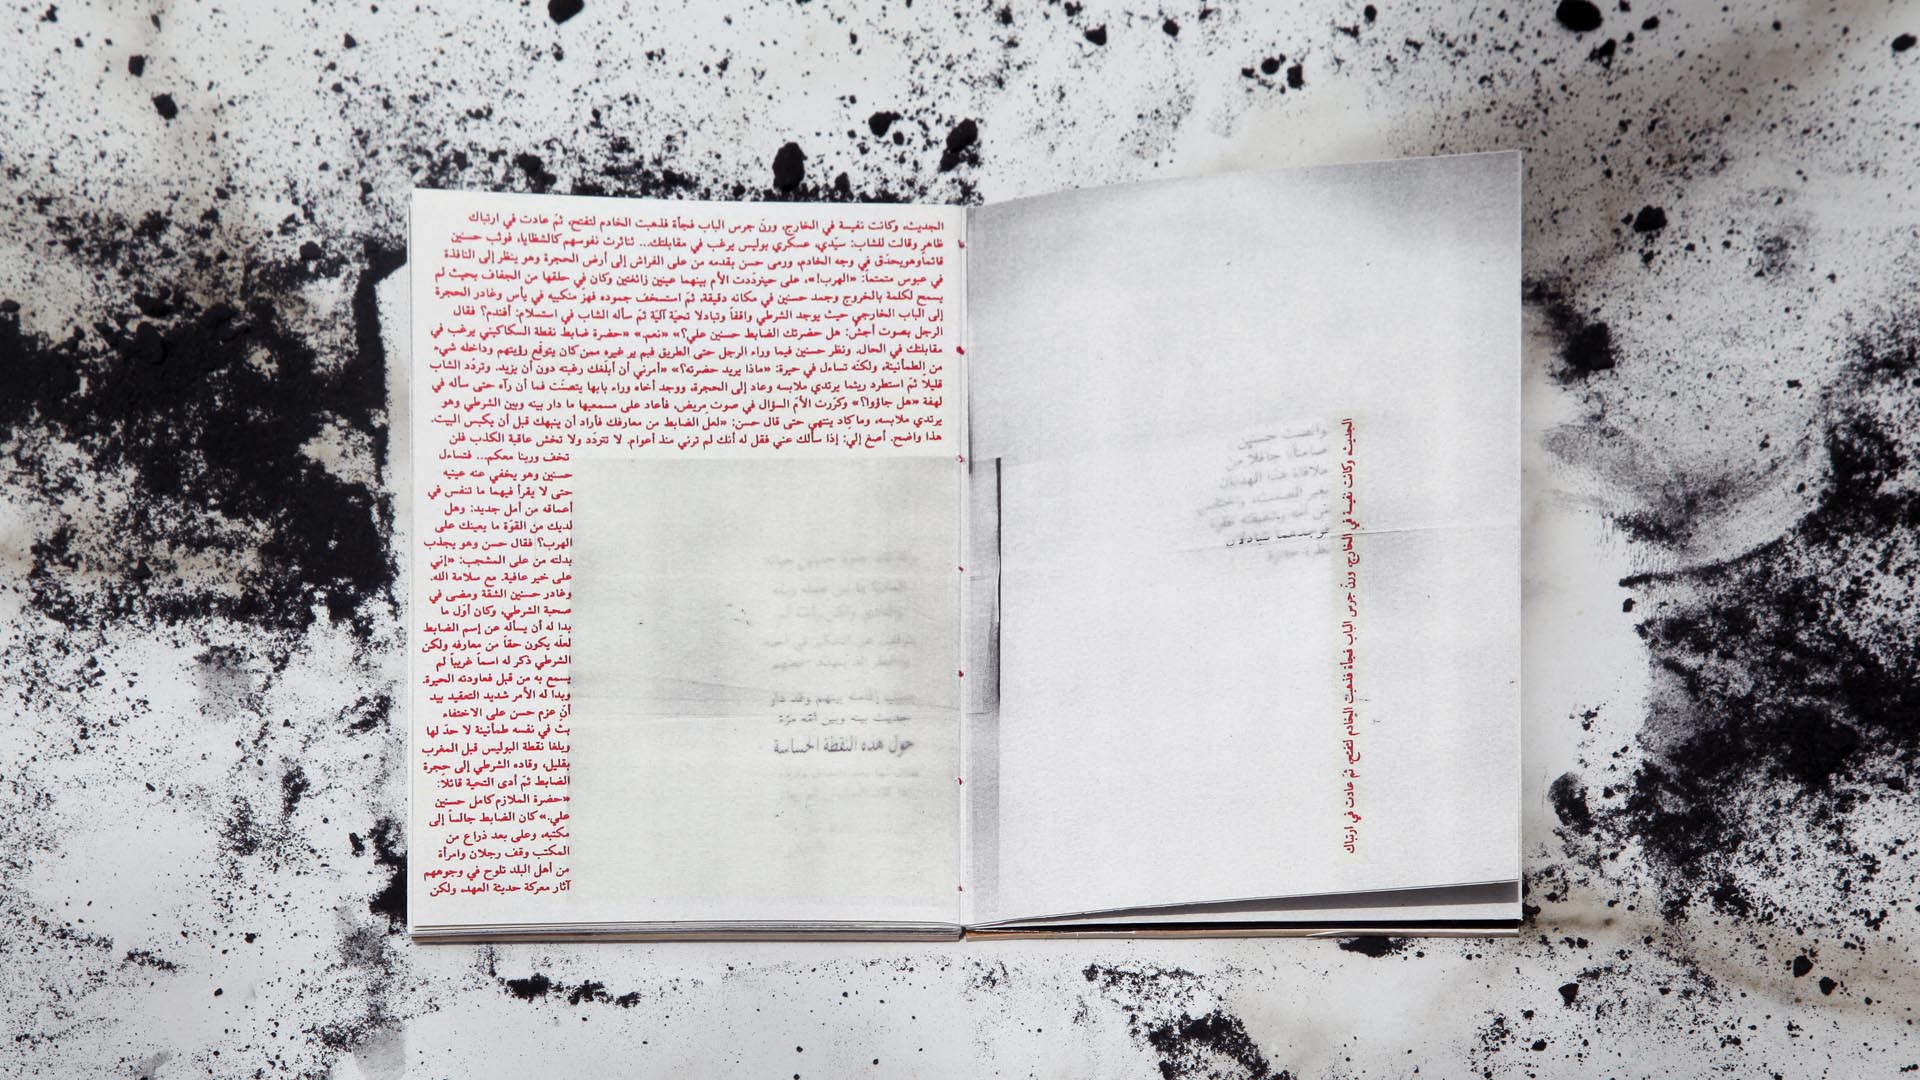 الجديث، وكانت نفيسة في الخارج، ورنّ جرس الباب فجأة فذهبت الخادم لتفتح، ثمّ عادت في ارتباك
ظاهر وقالت للشاب: سيّدي، عسكري بوليس يرغب في مقابلتك... تناثرت نفوسهم كالشظايا، فوثب حسنين
قائماًوهويحدّق في وجه الخادم، ورمى حسن بقدمه من على الفراش إلى أرض الحجرة وهو ينظر إلى النافذة
في عبوس متمتماً: «الهرب!»، على حينردّدت الأم بينهما عينين زائغتين وكان في حلقها من الجفاف بحيث لم
يسمح لكلمة بالخروج وجمد حسنين في مكانه دقيقة، ثمّ استسخف جموده فهزّ منكبيه في يأس وغادر الحجرة
إلى الباب الخارجي حيث يوجد الشرطي واقفاً وتبادلا تحيّة آليّة ثمّ سأله الشاب في استسلام: أفندم؟ فقال
الرجل بصوت أجش: هل حضرتك الضابط حسنين علي؟» «نعم.» «حضرة ضابط نقطة السكاكيني يرغب في
مقابلتك في الحال. ونظر حسنين فيما وراء الرجل حتى الطريق فبم ير غيره ممن كان يتوقّع رؤيتهم وداخله شيء
من الطمأنينة، ولكنّه تساءل في حيرة: «ماذا يريد حضرته؟» «أمرني أن أبلغك رغبته دون أن يزيد. وتردّد الشاب
قليلاً ثمّ استطرد ريثما يرتدي ملابسه وعاد إلى الحجرة، ووجد أخاه وراء بابها يتصنّت فما أن رآه حتى سأله في
لهفة «هل جاؤوا؟» وكرّرت الأمّ السؤال في صوت مريض، فأعاد على مسمعيها ما دار بينه وبين الشرطي وهو
يرتدي ملابسه، وماكاد ينتهي حتى قال حسن: «لعل الضابط من معارفك فأراد أن ينبهك قبل أن يكبس البيت.
هذا واضح. أصغ إلي: إذا سألك عني فقل له أنك لم ترني منذ أعوام. لا تتردّد ولا تخش عاقبة الكذب فلن
تخف وربنا معكم... فتساءل
حسنين وهو يخفي عنه عينيه
حتى لا يقرأ فيهما ما تنفس في
أعماقه من أمل جديد: وهل
لديك من القوّة ما يعينك على
الهرب؟ فقال حسن وهو يجذب
بدلته من على المشجب: «إني
على خير عافية. مع سلامة الله.
وغادر حسنين الشقة ومضى في
صحبة الشرطي، وكان أوّل ما
بدا له أن يسأله عن إسم الضابط
لعلّه يكون حقاً من معارفه ولكن
الشرطي ذكر له اسماً غريباً لم
يسمع به من قبل فعاودته الحيرة.
وبدا له الأمر شديد التعقيد بيد
أنّ عزم حسن على الاختفاء
بثّ في نفسه طمأنينة لا حدّ لها
وبلغا نقطة البوليس قبل المغرب
بقليل، وقاده الشرطي إلى حجرة
الضابط ثمّ أدى التحية قائلاً:
«حضرة الملازم كامل حسنين
علي.» كان الضابط جالساً إلى
مكتبه، وعلى بعد ذراع من
المكتب وقف رجلان وامرأة
من أهل البلد تلوح في وجوههم
آثار معركة حديثة العهد، ولكن
وقد دار
حديث بينه وبين أمّه مرّة
حول هذه النقطة الحساسة
الجديث، وكانت نفيسة في الخارج، ورنّ جرس الباب فجأة فذهبت الخادم لتفتح، ثمّ عادت في ارتباك